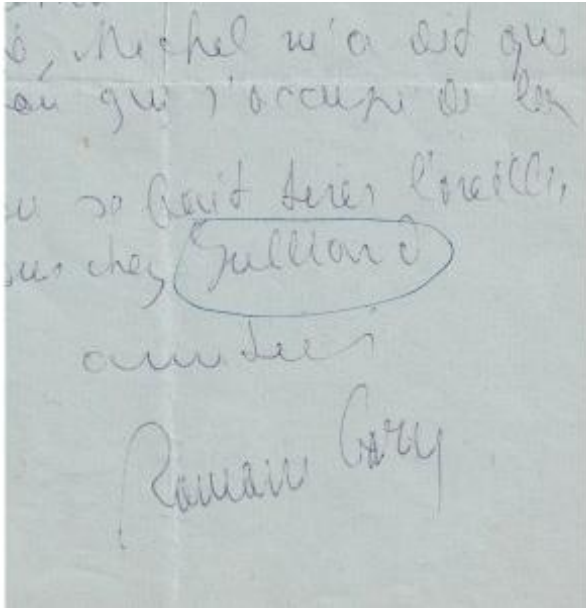 , Michel m'a dit que
qui s'occupe de
se ferait tirer l'oreille,
chez Gulliard
amitiés
Romain Gary